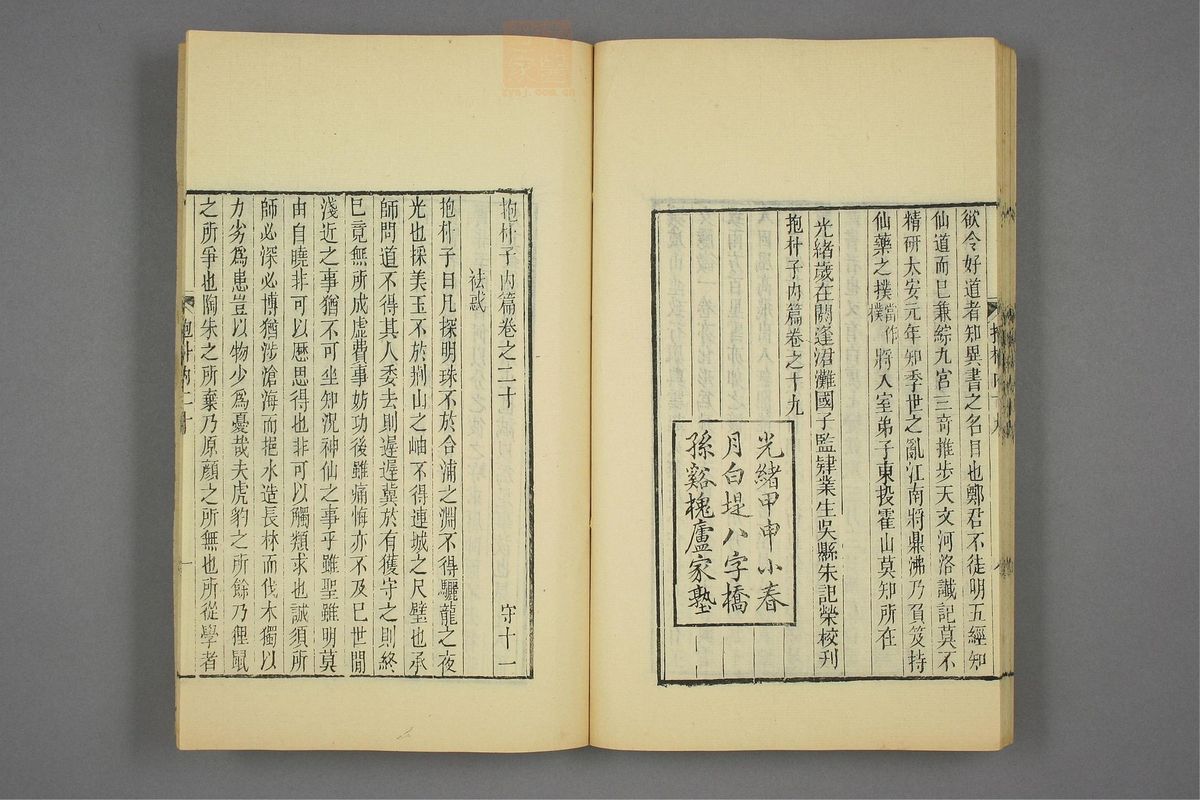 欲令好道者知異書之名目也鄭君不徒明五經知
仙道而已兼綜九宮三竒推步天文河洛讖記莫不
精研太安元年知季世之亂江南將鼎沸乃負笈持
仙藥之撲當作樸將入室弟子東投霍山莫知所在
光緒歲在閼逢涒灘國子監肄業生吳縣朱記榮校刋
抱朴子內篇卷之十九
光緒甲申小春
月白堤八字橋
孫谿槐廬家塾
抱朴子內篇卷之二十
守十一
袪惑
抱朴子曰凡探明珠不於合浦之淵不得驪龍之夜
光也採美玉不於荆山之岫不得連城之尺璧也承
師問道不得其人委去則遲遲冀於有獲守之則終
已竟無所成虛費事妨功後雖痛悔亦不及已世間
淺近之事猶不可坐知況神仙之事乎雖聖雖明莫
由自曉非可以歷思得也非可以觸類求也誠須所
師必深必博猶涉滄海而挹水造長林而伐木獨以
力劣爲患豈以物少爲憂哉夫虎豹之所餘乃狸鼠
之所爭也陶朱之所棄乃原顔之所無也所從學者
抱朴內二十
一